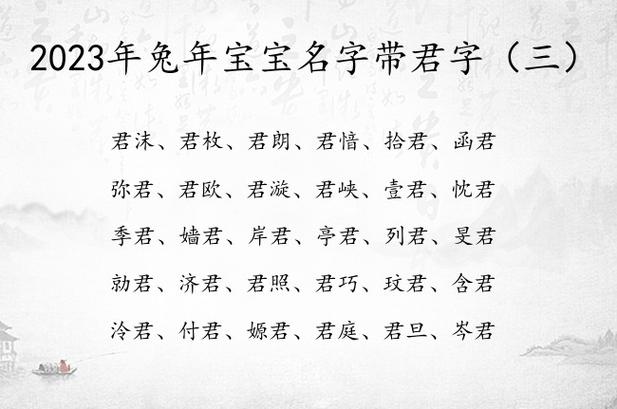 2023年兔年宝宝名字带君字（三）
君沫、君枚、君朗、君愔、拾君、函君
弥君、君欧、君漩、君峡、壹君、忱君
季君、嫱君、岸君、亭君、列君、旻君
勍君、济君、君照、君巧、玟君、含君
泠君、付君、嫄君、君庭、君旦、岑君